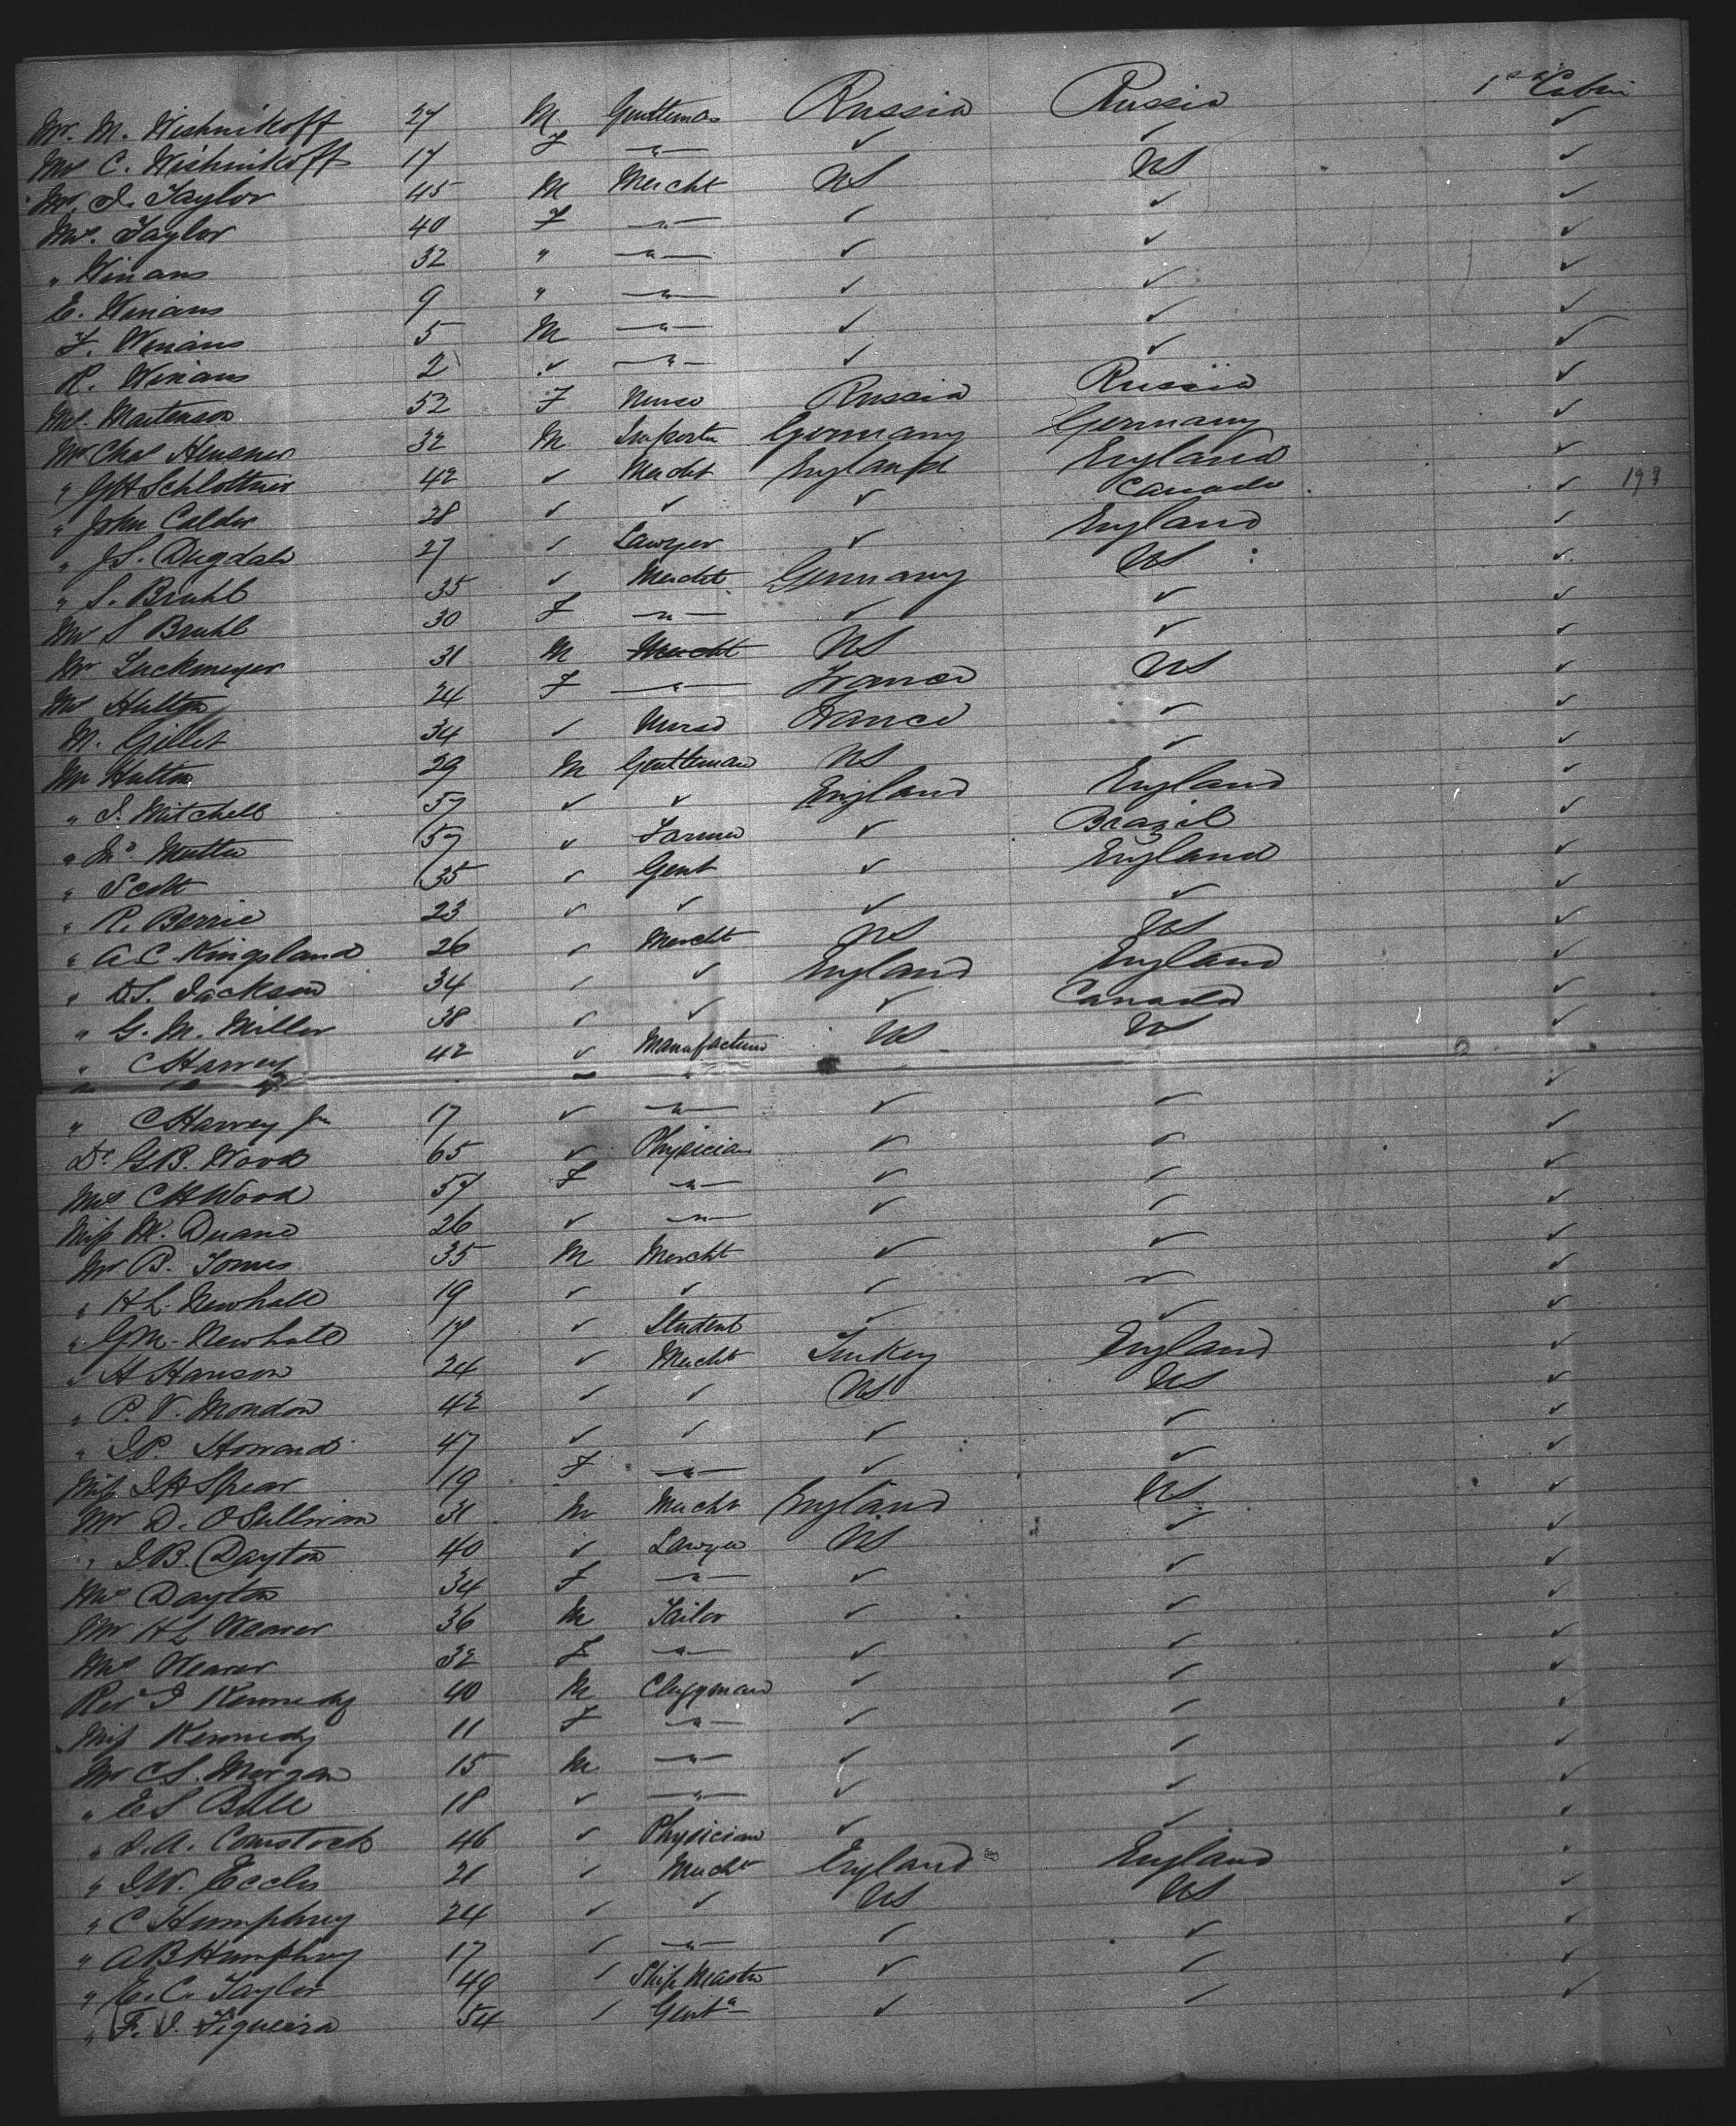 1st Cabin
Mr. M. Wishnikoff 27 M Gentleman Russia Russia ✓
Mrs C. Wishnikoff 17 F —"— ✓ ✓ ✓
Mr. J. Taylor 45 M Mercht US US ✓
Mrs. Taylor 40 F —"— ✓ ✓ ✓
" Winans 32 " —"— ✓ ✓ ✓
E. Winans 9 " —"— ✓ ✓ ✓
F. Winans 5 M —"— ✓ ✓ ✓
R. Winans 2 ✓ —"— ✓ ✓ ✓
Mrs. Martenson 52 F Nurse Russia Russia ✓
Mr Chas Heusner 32 M Importer Germany Germany ✓
" GH Schlottner 42 ✓ Mercht England England ✓
" John Calder 28 ✓ ✓ ✓ Canada ✓ 193
" J.S. Dugdale 27 ✓ Lawyer ✓ England ✓
" S. Bruhl 35 ✓ Mercht Germany US ✓
Mrs S Bruhl 30 F —"— ✓ ✓ ✓
Mr Luckmeyer 31 M Mercht US ✓ ✓
Mrs Hutton 24 F —"— France US ✓
M. Gillet 34 ✓ Nurse France ✓ ✓
Mr Hutton 29 M Gentleman US ✓ ✓
" J. Mitchell 57 ✓ ✓ England England ✓
" Jno. Mutter 57 ✓ Farmer ✓ Brazil ✓
" Scott 35 ✓ Gent ✓ England ✓
" R. Berrie 23 ✓ ✓ ✓ ✓ ✓
" A.C. Kingsland 26 ✓ Mercht US US ✓
" D.S. Jackson 34 ✓ ✓ England England ✓
" G. M. Miller 38 ✓ ✓ ✓ Canada ✓
" C Harvey 42 ✓ Manufacturer US US ✓
" C Harvey Jr 17 ✓ —"— ✓ ✓ ✓
Dr. G.B. Wood 65 ✓ Physician ✓ ✓ ✓
Mrs C H Wood 57 F —"— ✓ ✓ ✓
Miss M. Duane 26 ✓ —"— ✓ ✓ ✓
Mr B. Tomes 35 M Mercht ✓ ✓ ✓
" H L. Newhall 19 ✓ ✓ ✓ ✓ ✓
" G.M. Newhall 17 ✓ Student ✓ ✓ ✓
" H Hanson 24 ✓ Mercht Turkey England ✓
" P. V. Mondon 42 ✓ ✓ US US ✓
" J.P. Howard 47 ✓ ✓ ✓ ✓ ✓
Miss J H Spear 19 F —"— ✓ ✓ ✓
Mr D. O'Sullivan 31 M Mercht England US ✓
" J.B. Dayton 40 ✓ Lawyer US ✓ ✓
Mrs Dayton 34 F —"— ✓ ✓ ✓
Mr H L Weaver 36 M Tailor ✓ ✓ ✓
Mrs Weaver 32 F —"— ✓ ✓ ✓
Rev J Kennedy 40 M Clergyman ✓ ✓ ✓
Miss Kennedy 11 F —"— ✓ ✓ ✓
Mr C S. Morgan 15 M —"— ✓ ✓ ✓
" E S Ball 18 ✓ —"— ✓ ✓ ✓
" J.A. Comstock 46 ✓ Physician ✓ ✓ ✓
" J.W. Eccles 21 ✓ Mercht England England ✓
" C Humphrey 24 ✓ ✓ US US ✓
" A B Humphrey 17 ✓ —"— ✓ ✓ ✓
" E. C. Taylor 49 ✓ Ship Master ✓ ✓ ✓
" F. J. Figueira 54 ✓ Gent ✓ ✓ ✓